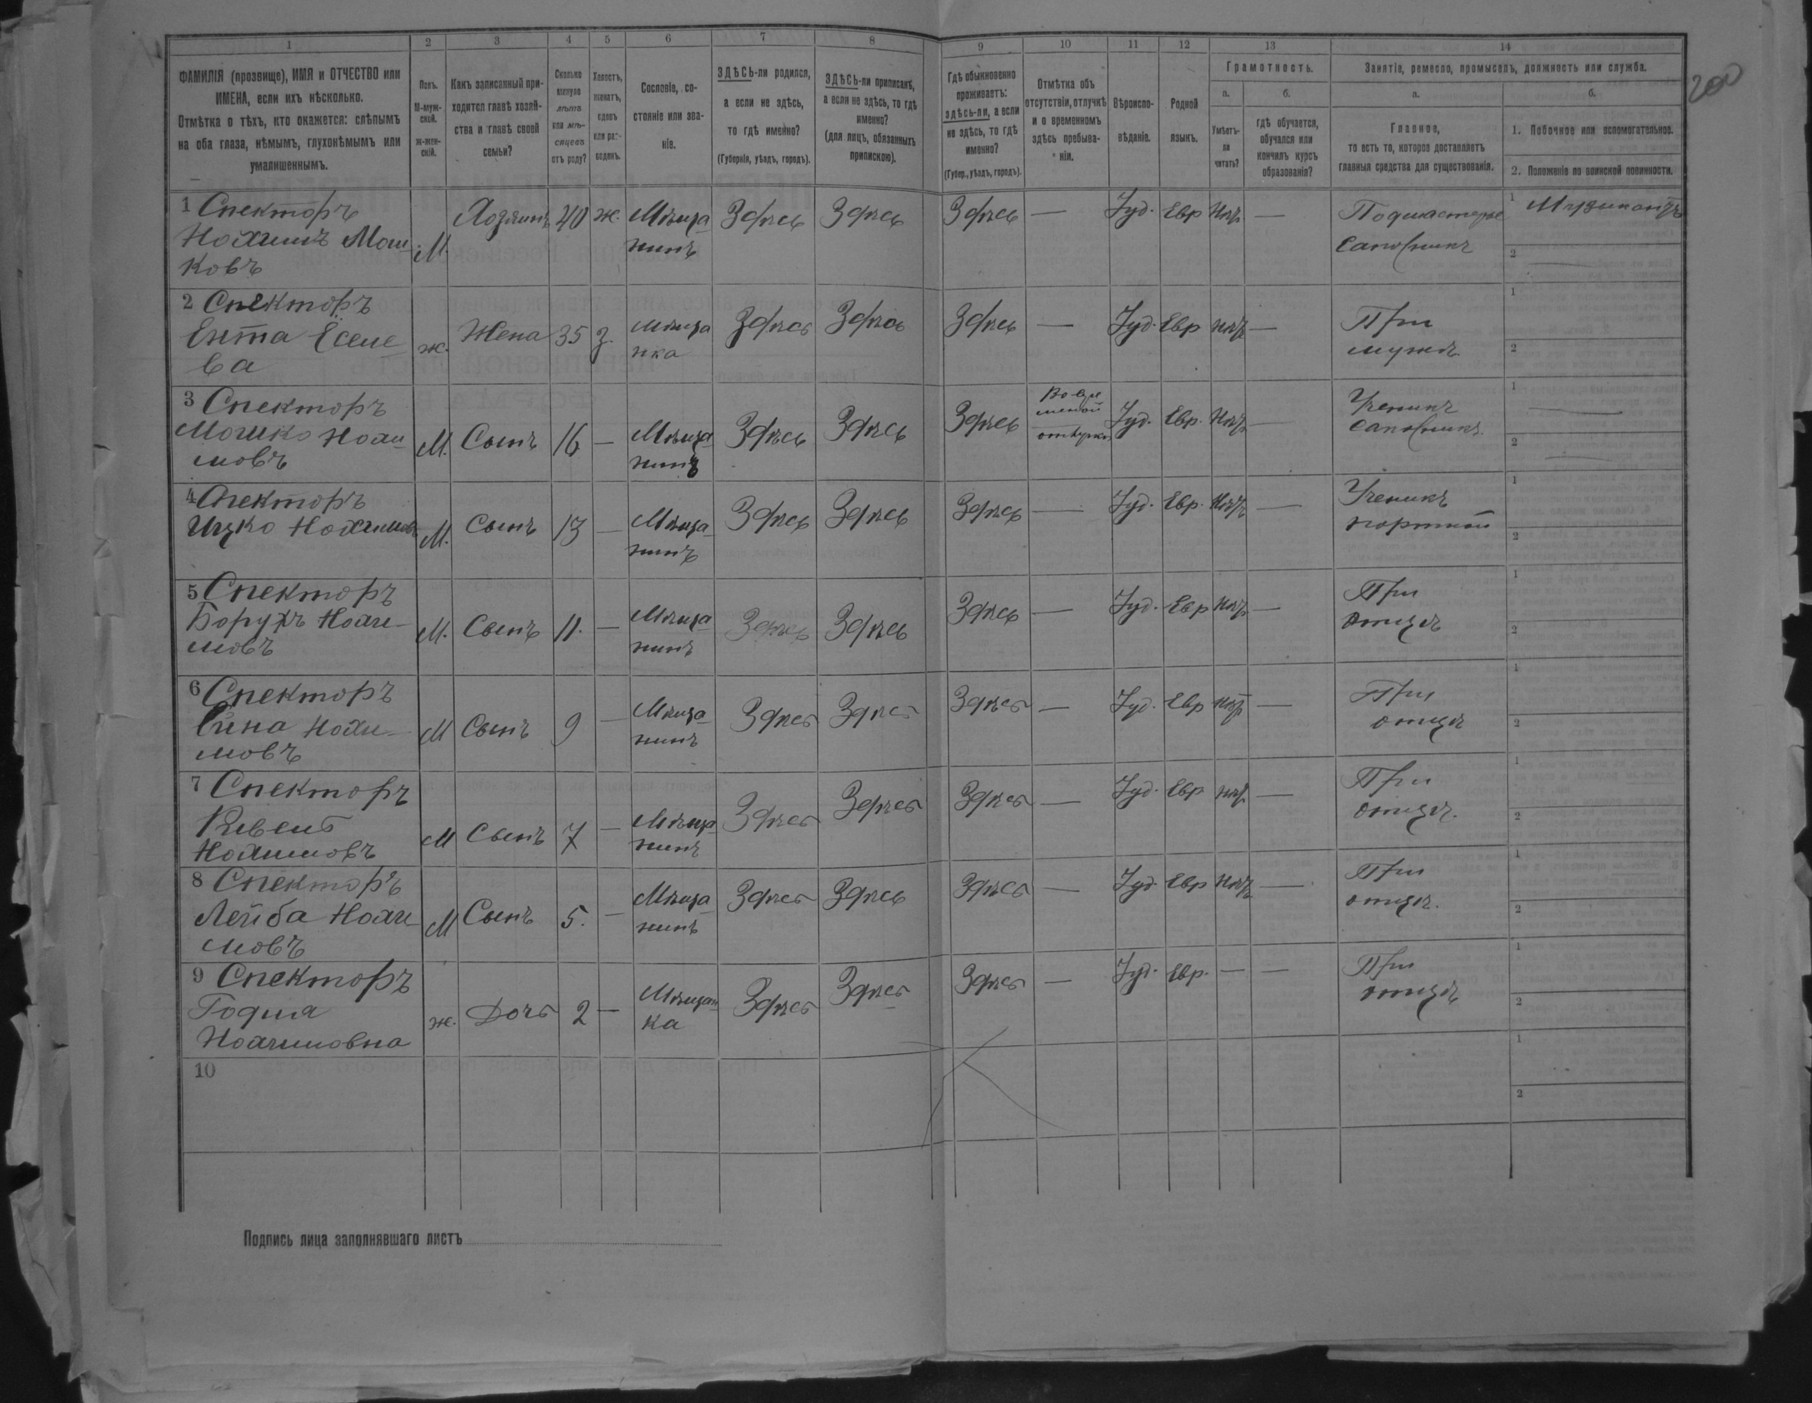 200
1 2 3 4 5 6 7 8 9 10 11 12 13 14
ФАМИЛІЯ (прозвище), ИМЯ и ОТЧЕСТВО или
ИМЕНА, если ихъ нѣсколько.
Отмѣтка о тѣхъ, кто окажется: слѣпымъ
на оба глаза, нѣмымъ, глухонѣмымъ или
умалишеннымъ.
Полъ.
М-муж-
ской.
Ж-жен-
скій.
Какъ записанный при-
ходится главѣ хозяй-
ства и главѣ своей
семьи?
Сколько
минуло
лѣтъ
или мѣ-
сяцевъ
отъ роду?
Холостъ,
женатъ,
вдовъ
или раз-
веденъ.
Сословіе, со-
стояніе или зва-
ніе.
ЗДѢСЬ-ли родился,
а если не здѣсь,
то гдѣ именно?
(Губернія, уѣздъ, городъ).
ЗДѢСЬ-ли приписанъ,
а если не здѣсь, то гдѣ
именно?
(для лицъ, обязанныхъ
припискою).
Гдѣ обыкновенно
проживаетъ:
здѣсь-ли, а если
не здѣсь, то гдѣ
именно?
(Губер., уѣздъ, городъ).
Отмѣтка объ
отсутствіи, отлучкѣ
и о временномъ
здѣсь пребыва-
ніи.
Вѣроиспо-
вѣданіе.
Родной
языкъ.
Грамотность.
а. б.
Умѣетъ-
ли
читать?
гдѣ обучается,
обучался или
кончилъ курсъ
образованія?
Занятіе, ремесло, промыселъ, должность или служба.
а. б.
Главное,
то есть то, которое доставляетъ
главныя средства для существованія.
1. Побочное или вспомогательное.
2. Положеніе по воинской повинности.
1 Спекторъ
Нохимъ Мош-
ковъ
М. Хозяинъ 40 ж. Мѣща-
нинъ
Здѣсь Здѣсь Здѣсь — Іуд. Евр нѣт —
Подмастерье
сапожникъ
1 Музыкантъ
2 —
2 Спекторъ
Ента Еселе-
ва
ж. Жена 35 з. мѣща
нка
Здѣсь Здѣсь Здѣсь — Іуд. Евр нѣт —
При
мужѣ
1
2
3 Спекторъ
Мошко Нохи-
мовъ
М. Сынъ 16 — Мѣща-
нинъ
Здѣсь Здѣсь Здѣсь
отлучкѣ
Іуд. Евр. нѣт —
Ученикъ
сапожникъ
1 —
2 —
4 Спекторъ
Ицко Нохимовъ
М. Сынъ 13 — Мѣща-
нинъ
Здѣсь Здѣсь Здѣсь — Іуд. Евр. нѣт —
Ученикъ
портной
1
2
5 Спекторъ
Борухъ Нохи-
мовъ
М. Сынъ 11. — Мѣща-
нинъ
Здѣсь Здѣсь Здѣсь — Іуд. Евр нѣт —
При
отцѣ
1
2
6 Спекторъ
Нохи-
мовъ
М Сынъ 9 — Мѣща-
нинъ
Здѣсь Здѣсь Здѣсь — Іуд. Евр нѣт —
При
отцѣ
1
2
7 Спекторъ
Нохимовъ
М Сынъ 7 — Мѣща
нинъ
Здѣсь Здѣсь Здѣсь — Іуд. Евр нѣт —
При
отцѣ.
1
2
8 Спекторъ
Лейба Нохи-
мовъ
М Сынъ 5. — Мѣща-
нинъ
Здѣсь Здѣсь Здѣсь — Іуд. Евр нѣт —
При
отцѣ.
1
2
9 Спекторъ
Нохимовна
ж. Дочь 2 — Мѣщан-
ка
Здѣсь Здѣсь Здѣсь — Іуд. Евр. — —
При
отцѣ
1
2
10
1
2
Подпись лица заполнявшаго листъ